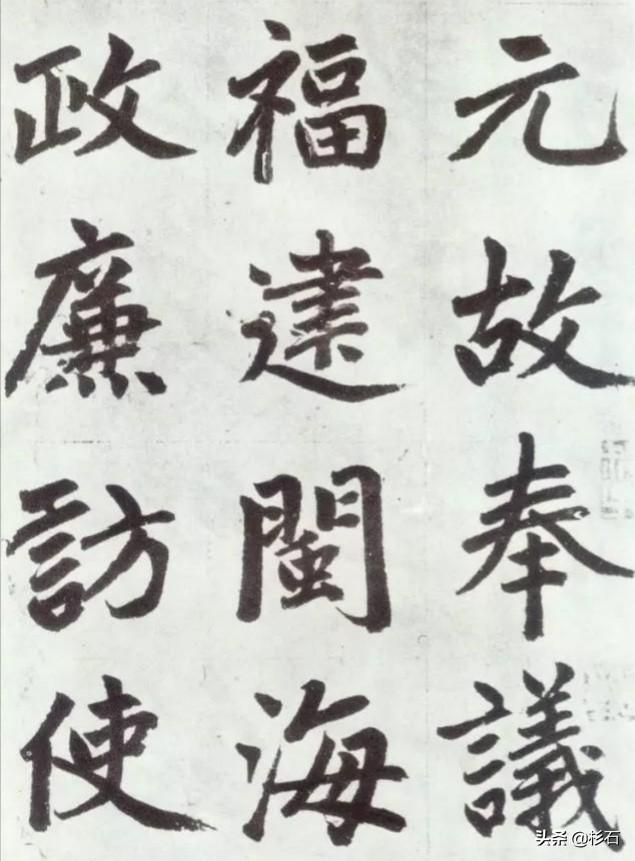 元故奉議
福建閩海
政廉訪使
头条 @杉石